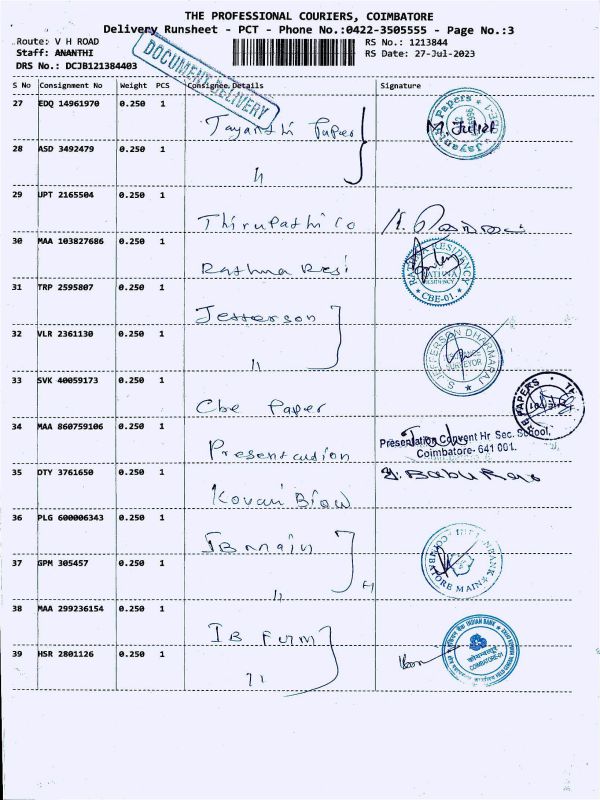 THE PROFESSIONAL COURIERS, COIMBATORE
Delivery Runsheet - PCT - Phone No.:0422-3505555 - Page No.:3
Route: V H ROAD
RS No.: 1213844
Staff: ANANTHI
RS Date: 27-Jul-2023
DRS No.: DCJB121384403
DOCUMENT DELIVERY
S No Consignment No Weight PCS Consignee Details Signature
27 EDQ 14961970 0.250 1
Jayanthi Paper
M. Juliet
28 ASD 3492479 0.250 1
29 UPT 2165504 0.250 1
Thirupathi Co
30 MAA 103827686 0.250 1
Rathna Resi
RESIDENCY
CBE-01
31 TRP 2595807 0.250 1
Jefferson
32 VLR 2361130 0.250 1
S. JEFFERSON DHARMARAJ
SURVEYOR
33 SVK 40059173 0.250 1
Cbe Paper
34 MAA 860759106 0.250 1
Presentation
Presentation Convent Hr Sec. School,
Coimbatore- 641 001.
35 DTY 3761650 0.250 1
Kovai Biow
Y. Babu Rao
36 PLG 600006343 0.250 1
IB main
37 GPM 305457 0.250 1
COIMBATORE MAIN
38 MAA 299236154 0.250 1
IB Furm
INDIAN BANK
COIMBATORE-01
39 HSR 2801126 0.250 1